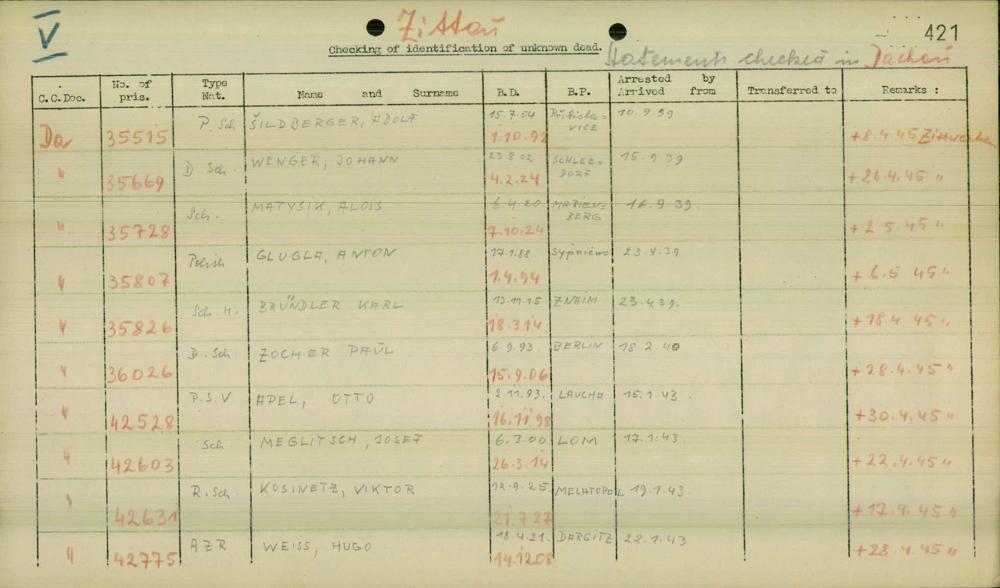 V
Zittau
421
Checking of identification of unknown dead.
Statements checked in Dachau
C.C.Doc. No. of pris. Type Nat. Name and Surname B.D. B.P. Arrested by Arrived from Transferred to Remarks :
Da 35515 P. Sch ŠILDBERGER, ADOLF 15.7.04 1.10.92 VICE 10.9.39 +8.4.45
" 35669 D Sch. WENGER, JOHANN 23 8 02 4.2.24 SCHLEE= DORF 15.9.39 +26.4.45 "
" 35728 Sch. MATYSIK, ALOIS 6.4.20 7.10.24 MARIEN= BERG 16.9.39. +2 5.45 "
" 35807 Polish GLUGLA, ANTON 17.1.88 1.4.94 Sypniewo 23.4.39 +6.5 45 "
" 35826 Sch. H. BRÜNDLER KARL 18.3.14 ZNAIM 23.4.39. +18.4 45 "
" 36026 D. Sch. ZOCHER PAUL 6 9.93 15.9.06 BERLIN 18 2.40 +28.4.45 "
" 42528 P.S.V APEL, OTTO 2.11.93. 16.11 98 LAUCHA 15.1.43. +30.4.45 "
" 42603 Sch MEGLITSCH, JOSEF 6.3.00 26.3.14 LOM 17.1.43. +22.4.45 "
" 42631 R. Sch KOSINETZ, VIKTOR 12.9.25 21.7 27 MELATOPOL 19.1.43 +17.4.45 "
" 42775 AZR WEISS, HUGO 18 4.21. 14.12.08 DARGITZ 22.1.43 +28.4.45 "